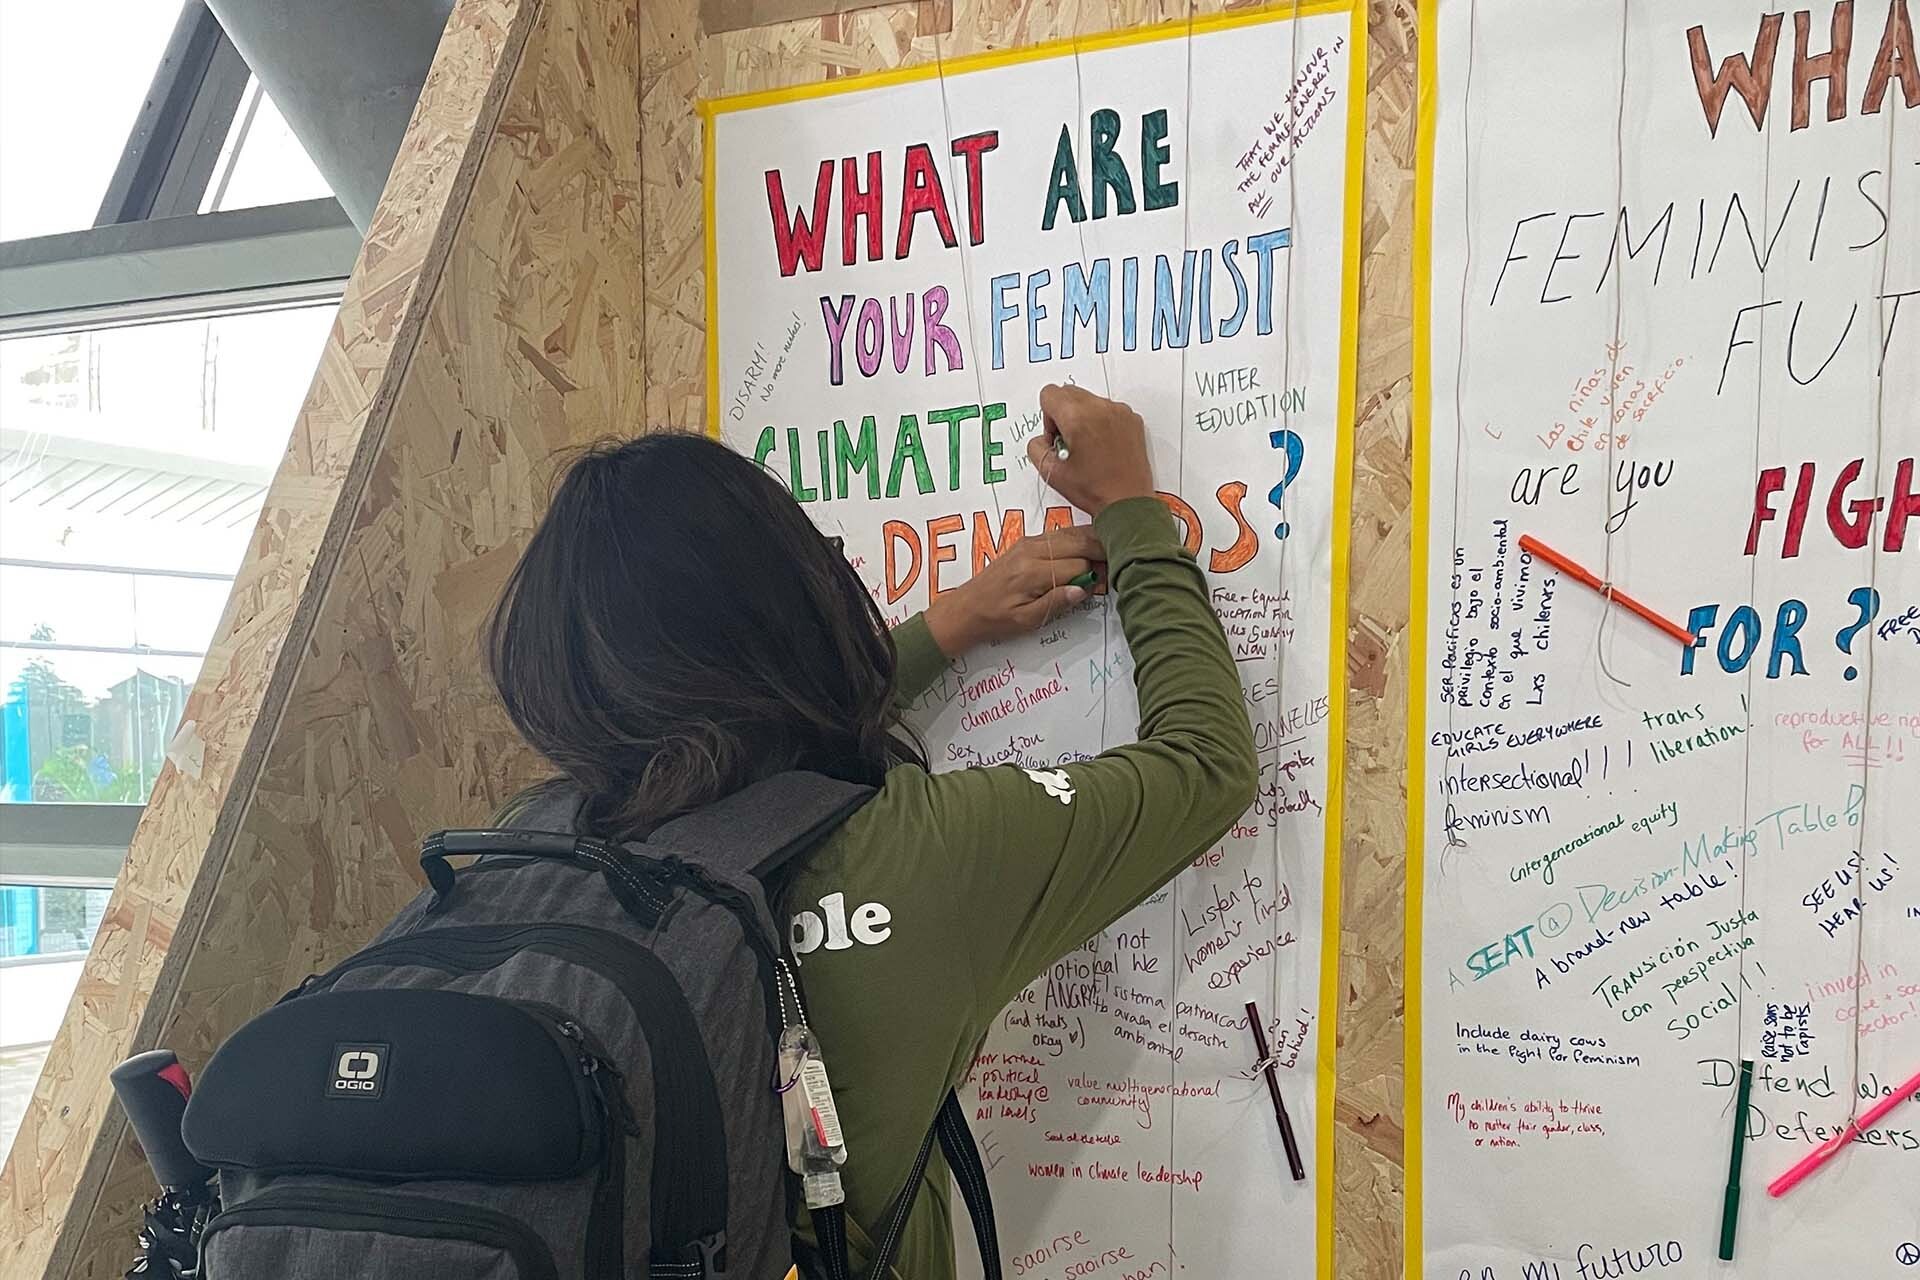 WHAT ARE
YOUR FEMINIST
CLIMATE
THAT WE HONOUR
THE FEMALE ENERGY IN
ALL OUR ACTIONS
DISARM!
No more nukes!
WATER
EDUCATION
?
Free + Equal
NOW!
feminist
climate finance!
Sex
education
Listen to
women's lived
experience.
not
We
are ANGRY!
(and thats
okay ♡)
sistema patriarcal
desastre
ambiental
behind!
in political
leadership @
all levels
value multigenerational
community
Seat at the table
women in climate leadership
saoirse
saoirse
ole
OGIO
FEMINIS
FUT
are you
FIGH
FOR?
Las niñas de
chile viven
en zonas
de sacrificio.
SER Pacificxs es un
privilegio bajo el
contexto socio-ambiental
en el que vivimos
Lxs chilenxs.
EDUCATE
GIRLS EVERYWHERE
trans
liberation!
reproductive
for ALL!!
intersectional!!!
feminism
intergenerational equity
A SEAT @ a Decision-Making Table!
A brand-new table!
SEE US!
HEAR US!
TRANSICIÓN JUSTA
con perspectiva
social!!
invest in
sector!
Raise sons
not to be
rapists
Include dairy cows
in the fight for feminism
Defend
Defenders
My children's ability to thrive
no matter their gender, class,
or nation.
en mi futuro